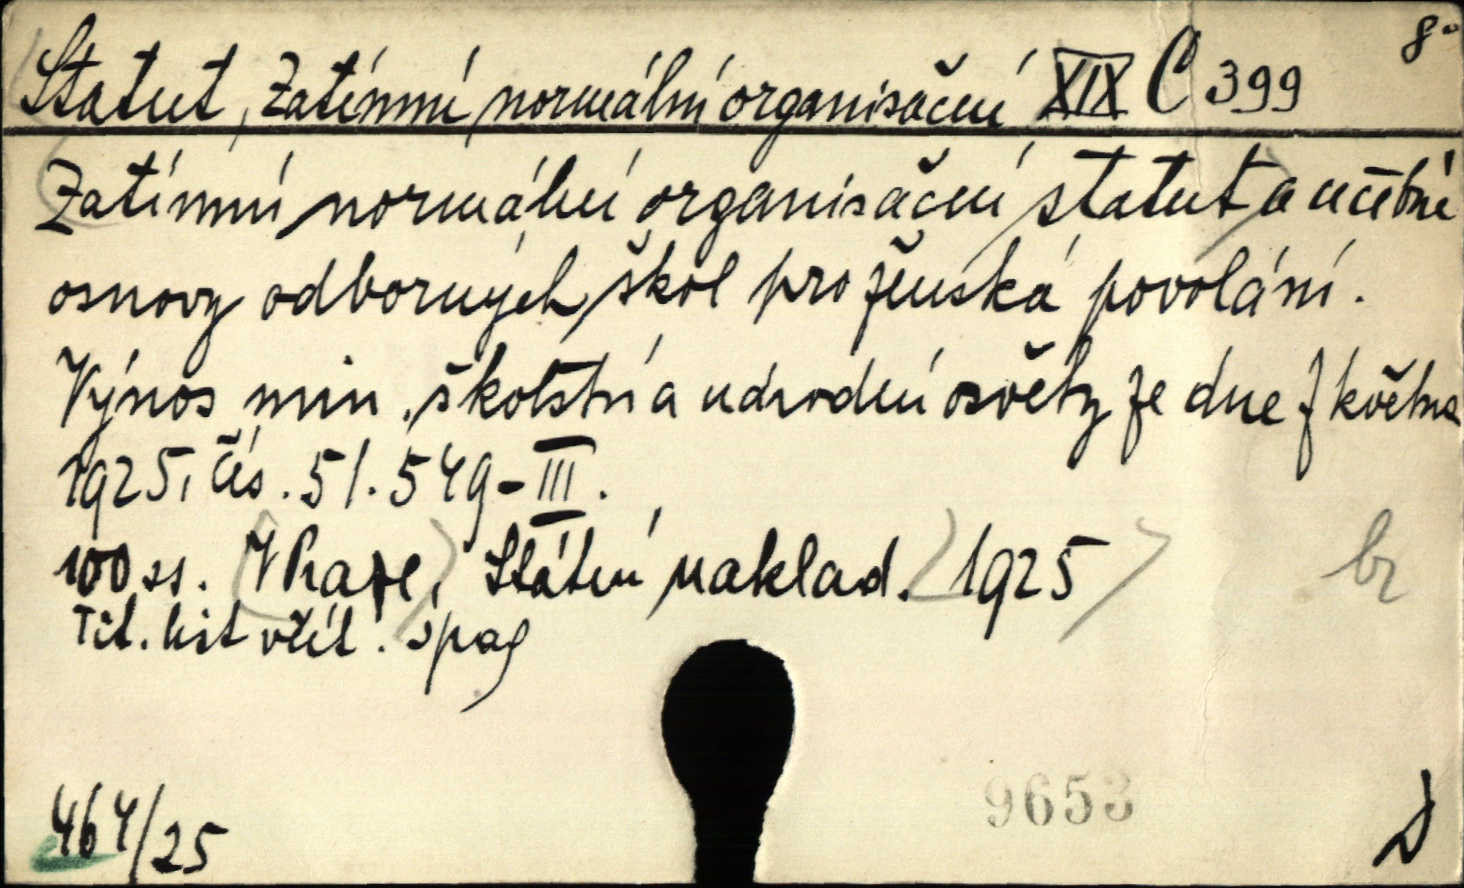 8°
Statut, Zatímní normální organisační XIX C 399
Zatímní normální organisační statut a učebné
osnovy odborných škol pro ženská povolání.
Výnos min. školství a národní osvěty ze dne 7 května
1925, čís. 51.549-III.
100 ss. V Praze, Státní naklad. 1925
Tit. list vžít. spag
br
464/25
9653